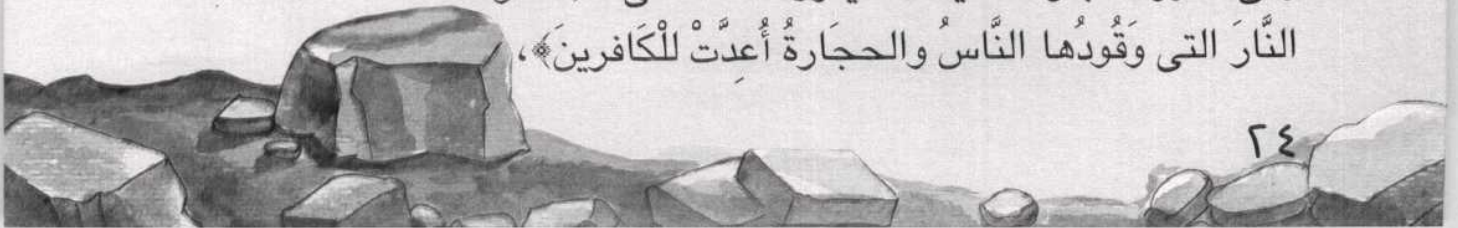 النَّارَ التى وَقُودُها النَّاسُ والحجَارةُ أُعِدَّتْ للْكَافرينَ﴾،
٢٤